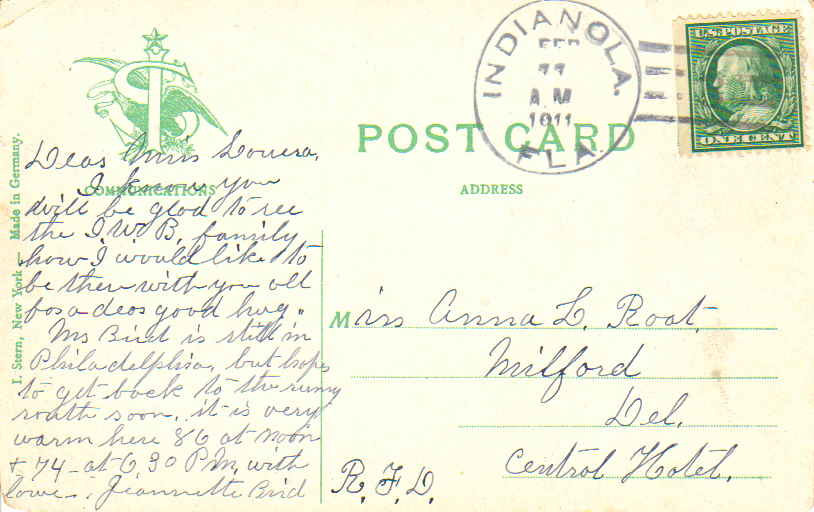 INDIANOLA.
FEB
11
A.M
1911
FLA.
U.S. POSTAGE
ONE CENT
POST CARD
ADDRESS
COMMUNICATIONS
I. Stern, New York - Made in Germany.
Dear Miss Louesa,
I know you
will be glad to see
the I W B, family
how I would like to
be there with you all
for a dear good hug.
Mr Bird is still in
Philadelphia, but hopes
to get back to the sunny
south soon, it is very
warm here 86 at noon
+ 74 - at 6 30 P M, with
love - : Jeannette Bird
Miss Anna L. Root,
Milford
Del.
Central Hotel.
R. F. D.